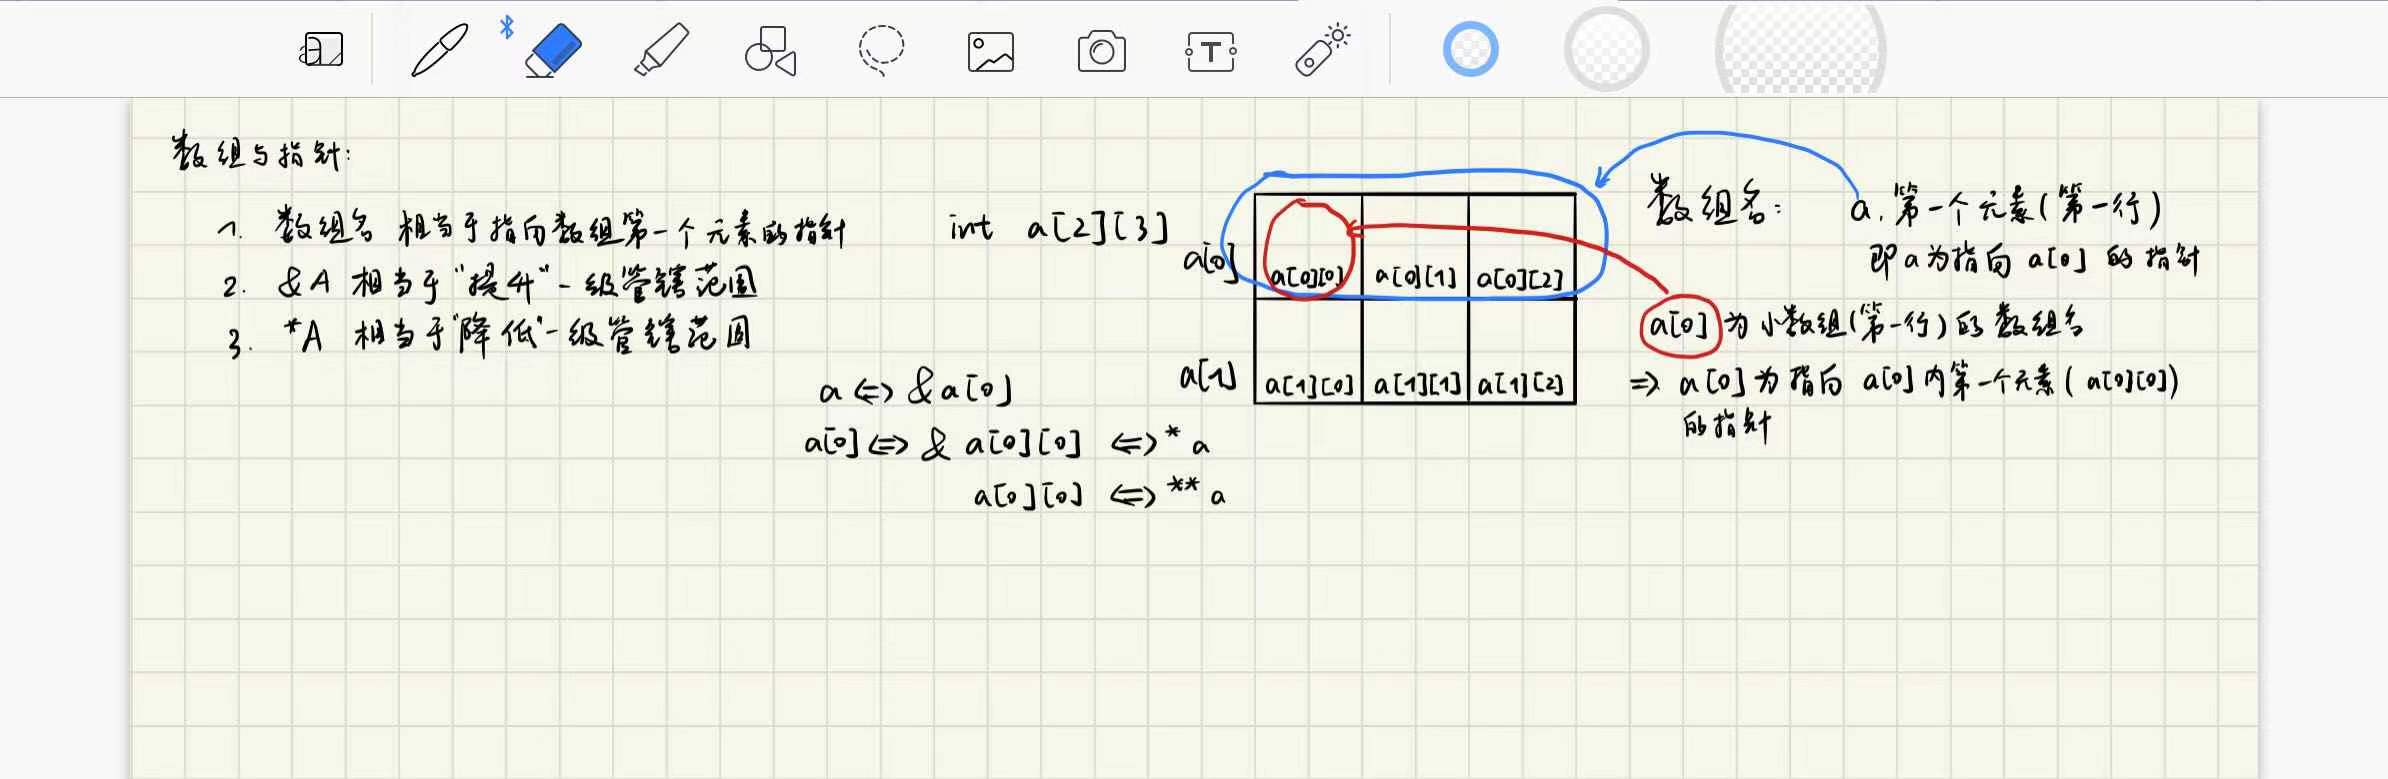 数组与指针:
1. 数组名 相当于指向数组第一个元素的指针
2. &A 相当于"提升"一级管辖范围
3. *A 相当于"降低"一级管辖范围
int a[2][3]
a[0]
a[0][0] a[0][1] a[0][2]
a[1]
a[1][0] a[1][1] a[1][2]
a <=> &a[0]
a[0] <=> & a[0][0] <=> * a
a[0][0] <=> ** a
数组名: a, 第一个元素(第一行)
即 a 为指向 a[0] 的指针
a[0] 为小数组(第一行)的数组名
=> a[0] 为指向 a[0] 内第一个元素( a[0][0])
的指针
T